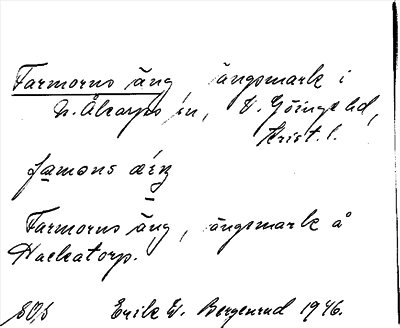 Farmorns äng, ängsmark i
N. Åkarps sn, V. Göinge hd,
Krist. l.
famons äŋ
Farmorns äng, ängsmark å
Hackatorp.
Erik W. Bergenrud 1946.